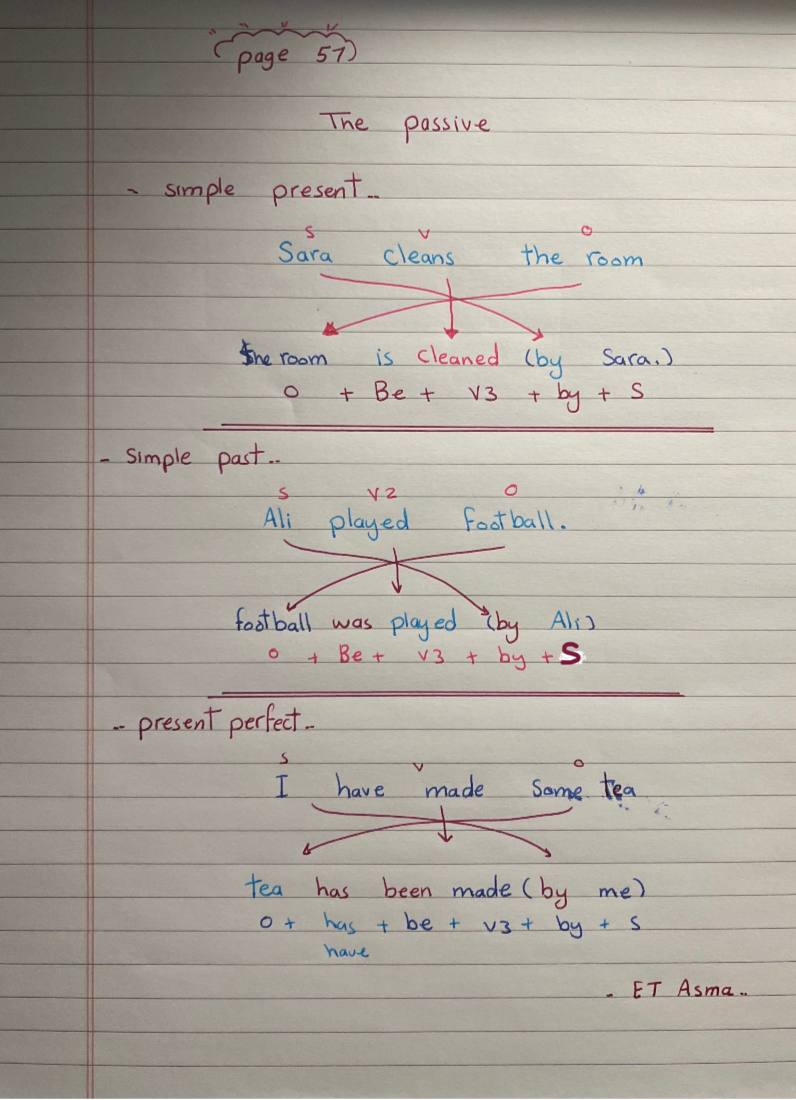 page 57
The passive
- simple present..
S V O
Sara cleans the room
the room is cleaned (by Sara.)
O + Be + V3 + by + S
- Simple past..
S V2 O
Ali played football.
football was played (by Ali)
O + Be + V3 + by + S
- present perfect..
S V O
I have made some tea
tea has been made (by me)
O + has + be + V3 + by + S
have
- ET Asma..